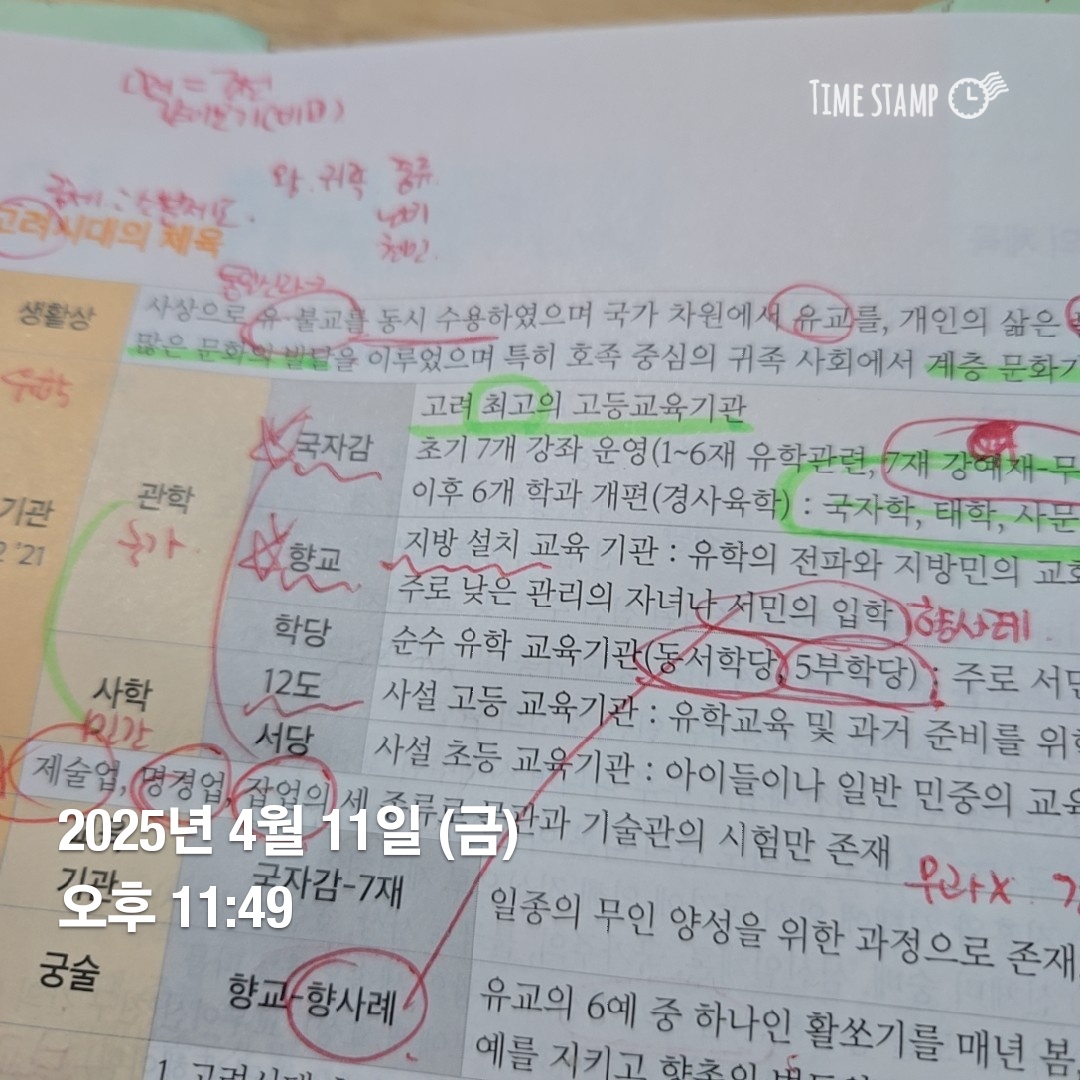 TIME STAMP
왕. 귀족
중류.
노비
천민.
고려시대의 체육
생활상
사상으로 유·불교를 동시 수용하였으며 국가 차원에서 유교를, 개인의 삶은
많은 문화의 발달을 이루었으며 특히 호족 중심의 귀족 사회에서 계층 문화가
기관
'21
관학
국가
국자감
고려 최고의 고등교육기관
초기 7개 강좌 운영(1~6재 유학관련, 7재 강예재-무
이후 6개 학과 개편(경사육학) : 국자학, 태학, 사문
향교
지방 설치 교육 기관 : 유학의 전파와 지방민의 교화
주로 낮은 관리의 자녀나 서민의 입학
향사례
학당
순수 유학 교육기관(동서학당, 5부학당) : 주로 서민
사학
민간
12도
사설 고등 교육기관 : 유학교육 및 과거 준비를 위한
서당
사설 초등 교육기관 : 아이들이나 일반 민중의 교육
제술업, 명경업, 잡업의 세 종류로 과 기술관의 시험만 존재
무과 X
기관
국자감-7재
일종의 무인 양성을 위한 과정으로 존재
궁술
향교-향사례
유교의 6예 중 하나인 활쏘기를 매년 봄
예를 지키고 향촌의
1. 고려시대
2025년 4월 11일 (금)
오후 11:49